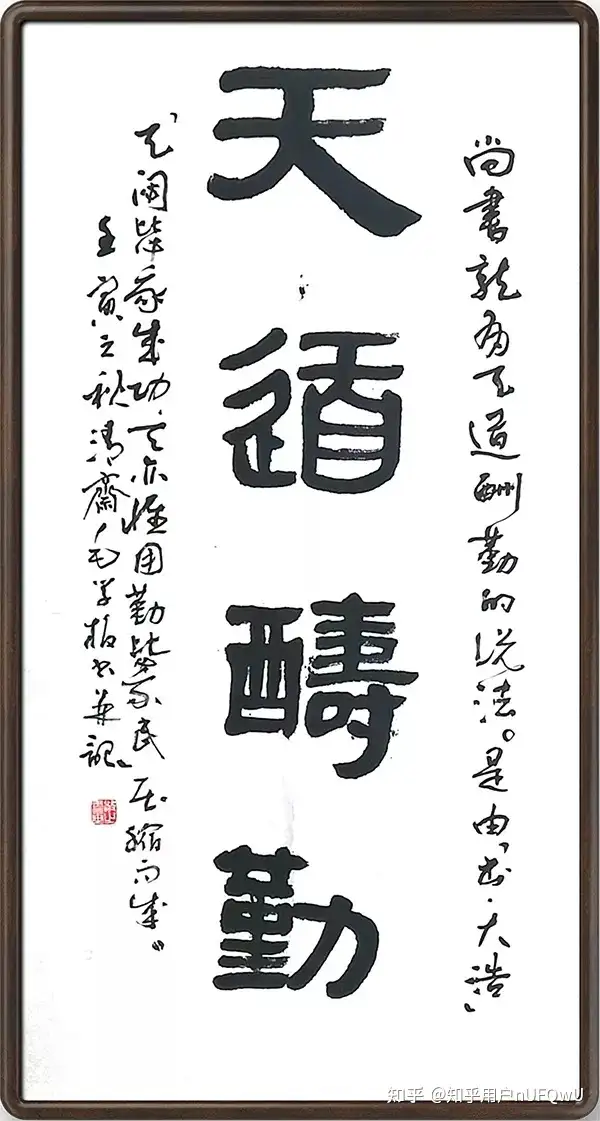 尚書就有天道酬勤的说法。是由「书·大浩」
天道醻勤
「天閟毖我成功·天亦惟用勤毖我民」压缩而成。
壬寅之秋清齋毛学书并記
知乎 @知乎用户nUFQwU